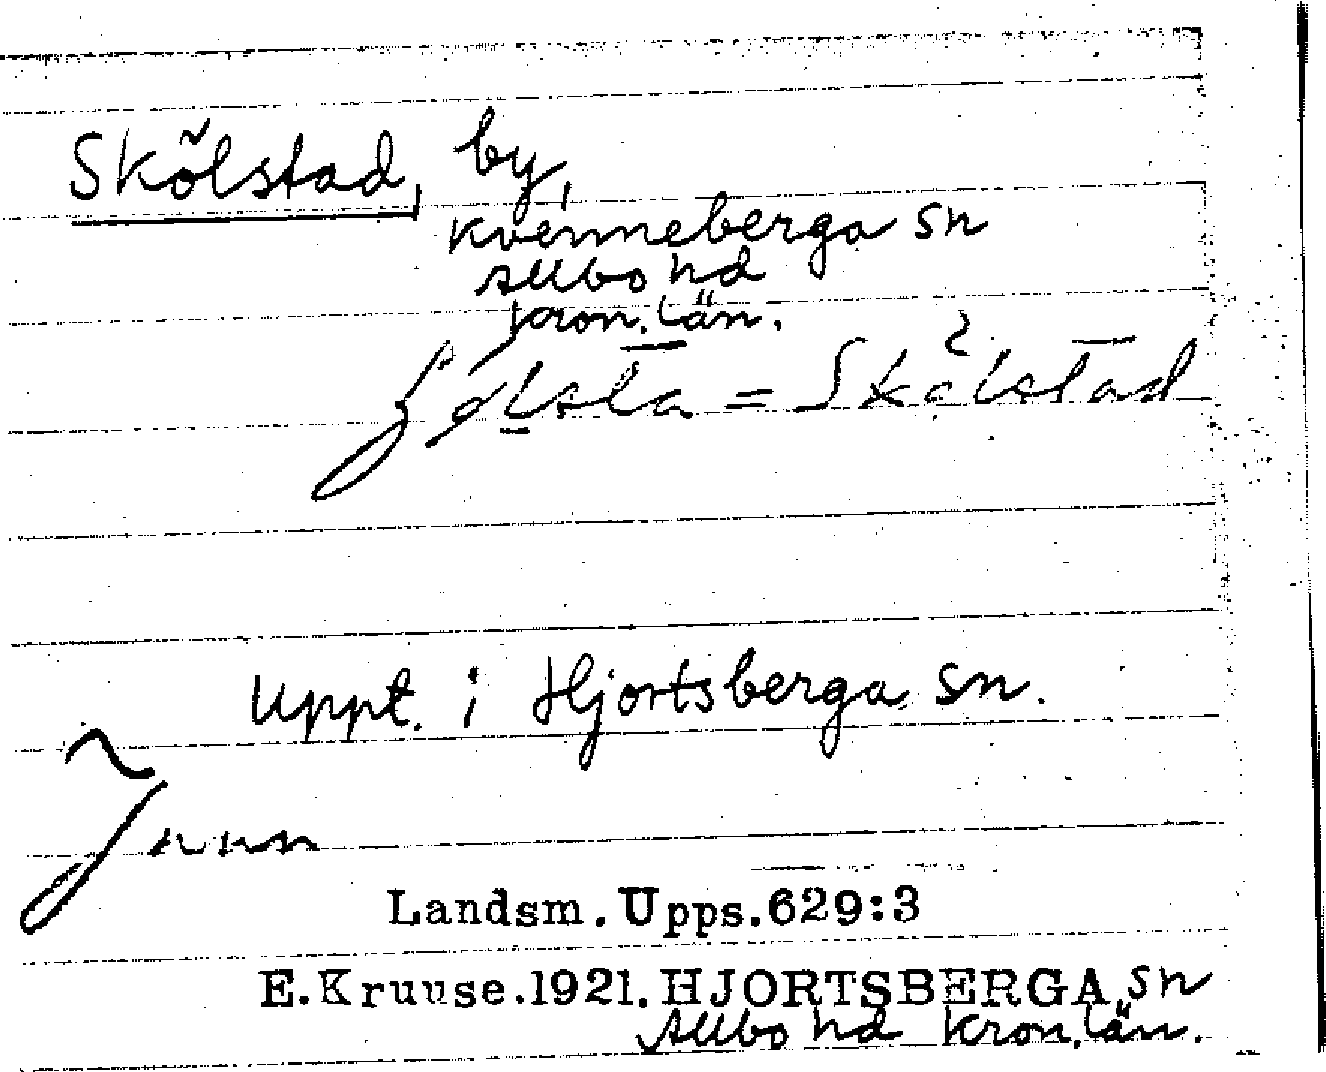 Skölstad, by,
Kvenneberga sn
Allbo hd
Kron. län.
= Skölstad
Uppt. i Hjortsberga sn.
Landsm. Upps. 629:3
E. Kruuse. 1921. HJORTSBERGA sn
Allbo hd Kron. län.